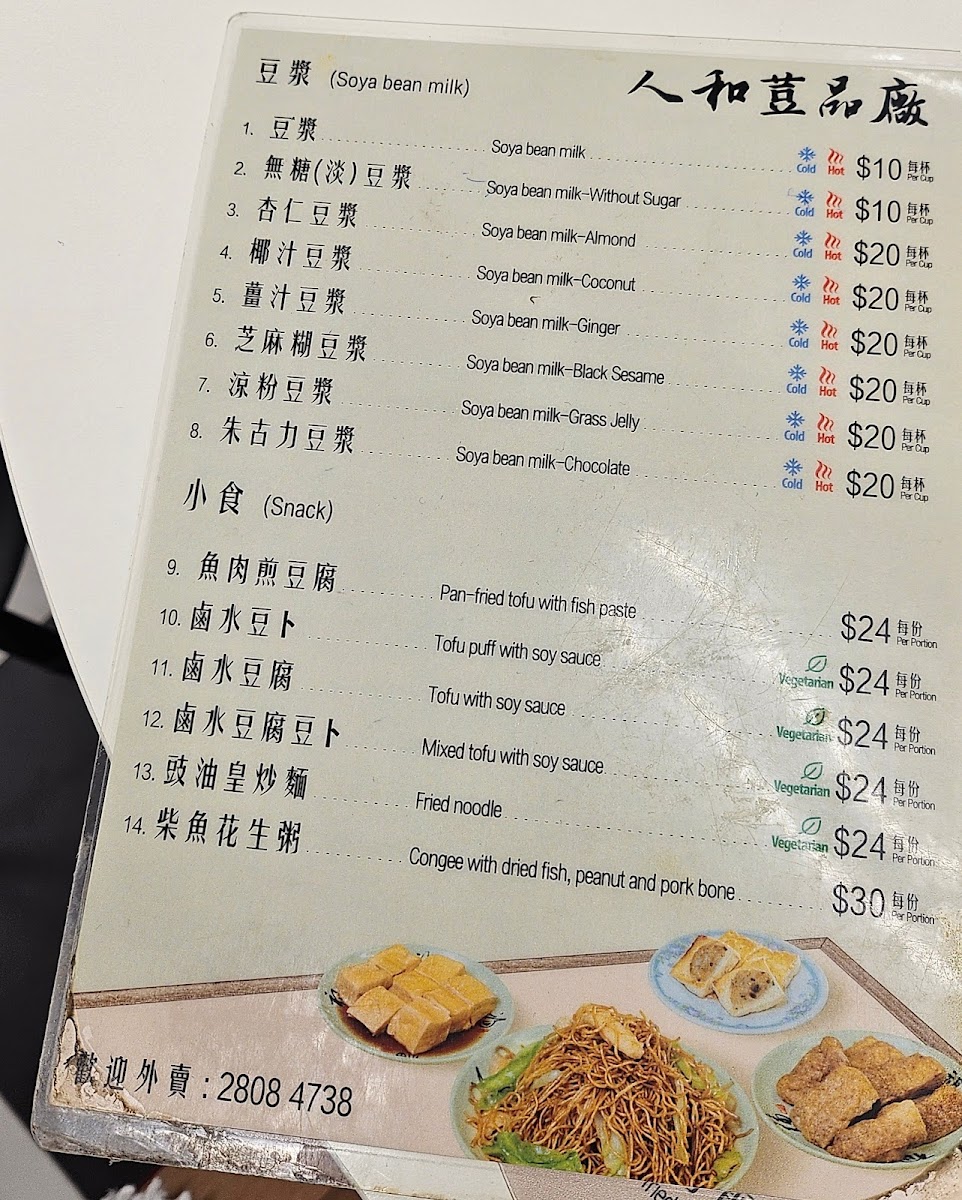 人和荳品廠
豆漿 (Soya bean milk)
1. 豆漿 Soya bean milk Cold Hot $10 每杯 Per Cup
2. 無糖(淡)豆漿 Soya bean milk-Without Sugar Cold Hot $10 每杯 Per Cup
3. 杏仁豆漿 Soya bean milk-Almond Cold Hot $20 每杯 Per Cup
4. 椰汁豆漿 Soya bean milk-Coconut Cold Hot $20 每杯 Per Cup
5. 薑汁豆漿 Soya bean milk-Ginger Cold Hot $20 每杯 Per Cup
6. 芝麻糊豆漿 Soya bean milk-Black Sesame Cold Hot $20 每杯 Per Cup
7. 涼粉豆漿 Soya bean milk-Grass Jelly Cold Hot $20 每杯 Per Cup
8. 朱古力豆漿 Soya bean milk-Chocolate Cold Hot $20 每杯 Per Cup
小食 (Snack)
9. 魚肉煎豆腐 Pan-fried tofu with fish paste $24 每份 Per Portion
10. 鹵水豆卜 Tofu puff with soy sauce Vegetarian $24 每份 Per Portion
11. 鹵水豆腐 Tofu with soy sauce Vegetarian $24 每份 Per Portion
12. 鹵水豆腐豆卜 Mixed tofu with soy sauce Vegetarian $24 每份 Per Portion
13. 豉油皇炒麵 Fried noodle Vegetarian $24 每份 Per Portion
14. 柴魚花生粥 Congee with dried fish, peanut and pork bone $30 每份 Per Portion
歡迎外賣 : 2808 4738